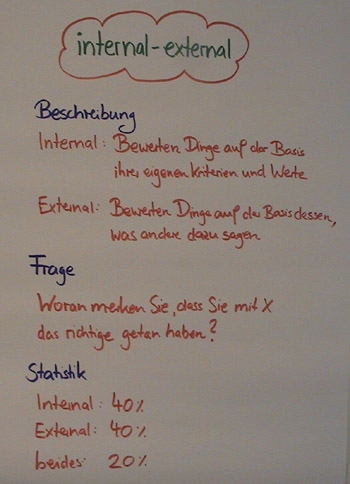 internal-external
Beschreibung
Internal: Bewerten Dinge auf der Basis
ihrer eigenen Kriterien und Werte
External: Bewerten Dinge auf der Basis dessen,
was andere dazu sagen
Frage
Woran merken Sie, dass Sie mit X
das richtige getan haben?
Statistik
Internal: 40%
External: 40%
beides: 20%